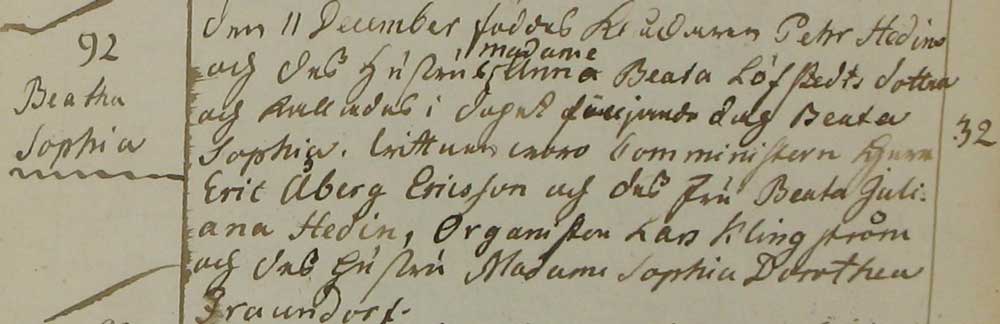 92
Beatha
Sophia
Den 11 December föddes Kr Petr Hedins
och des Hustrus Madame Anna Beata Löfstedts dotter
och kallades i dopet följande dag Beata
Sophia. Vittnen woro Comministern Herr
Eric Åberg Ericsson och des Fru Beata Juli-
ana Hedin, Organisten Lars Klingström
och des Hustru Madame Sophia Dorothea
Braundorf.
32